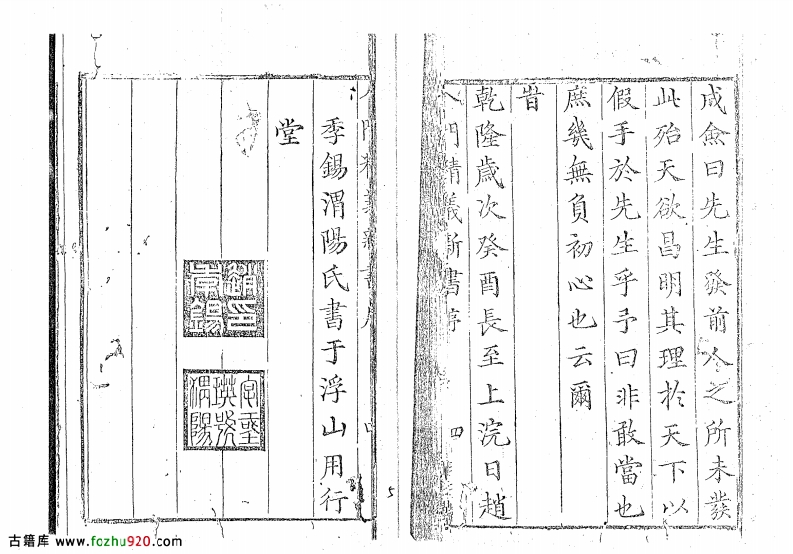 成僉曰先生發前人之所未發
此殆天欲昌明其理於天下以
假手於先生乎予曰非敢當也
庶幾無負初心也云爾
旹
乾隆歲次癸酉長至上浣日趙
八門精義新書序
四
季錫渭陽氏書于浮山用行
堂
趙印
季錫
字
渭陽
5
古籍库 www.fozhu920.com